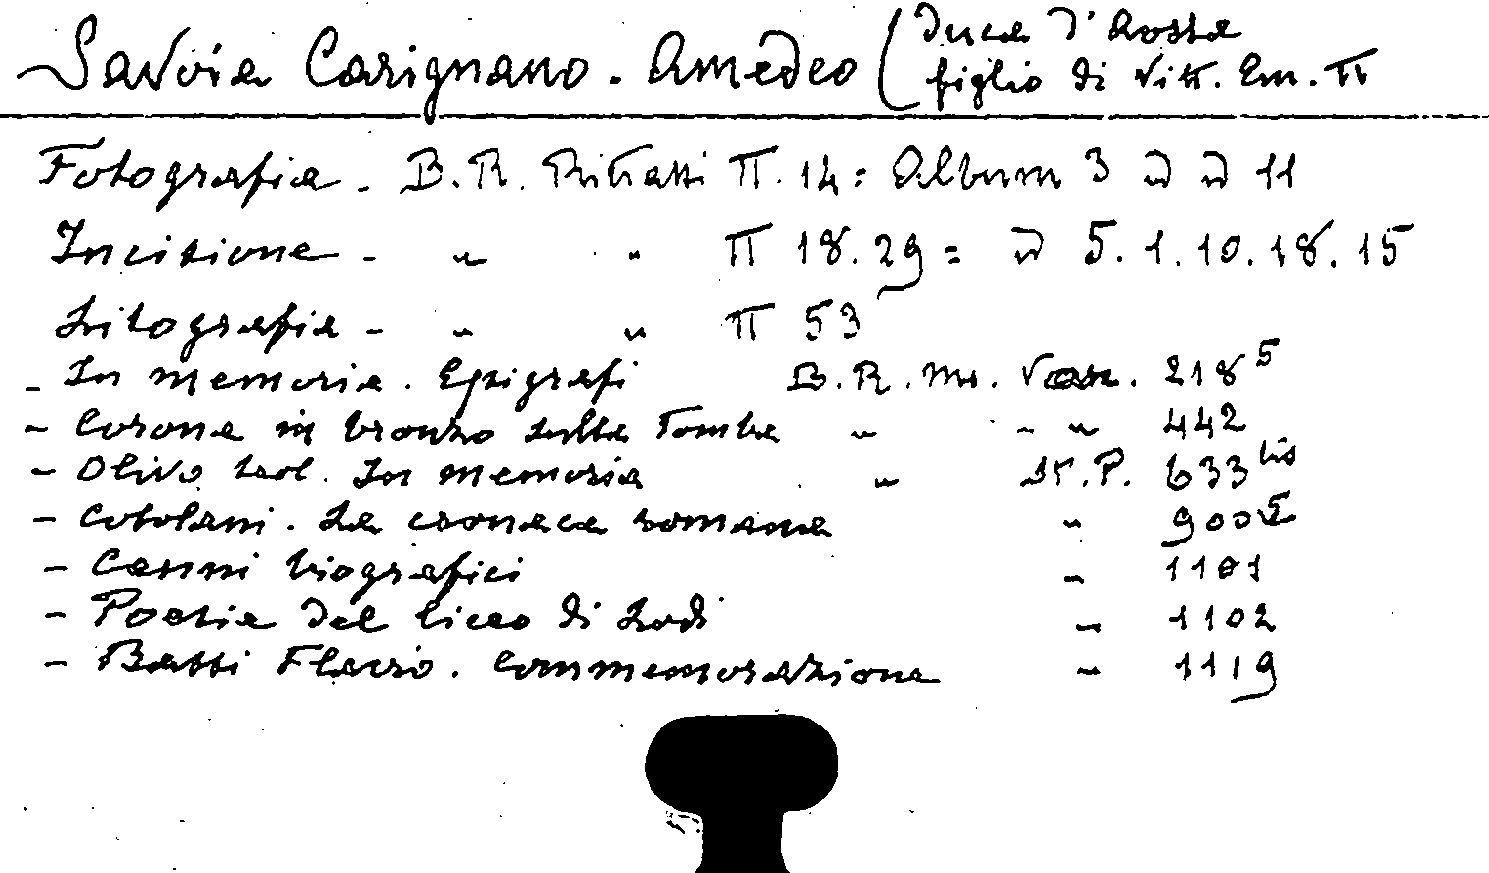 Savoia Carignano. Amedeo (Duca d'Aosta
figlio di Vitt. Em. II
Fotografia - B.R. Ritratti II. 14 = Album 3 11
Incisione - " " II 18.29 = 5.1.10.18.15
Litografia - " " II 53
- In memoria. Epigrafi B.R. Ms. 218⁵
- Corona in bronzo sulla Tomba " " " 442
- Olivo In memoria " St.P. 633 bis
- La cronaca romana " 900
- Cenni biografici " 1101
- Poesia del liceo di Lodi " 1102
- Bassi Flavio. Commemorazione " 1119